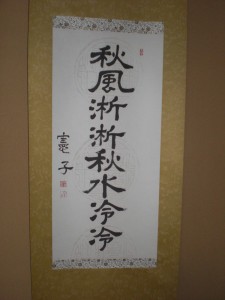 秋風淅淅秋水泠泠
憲子